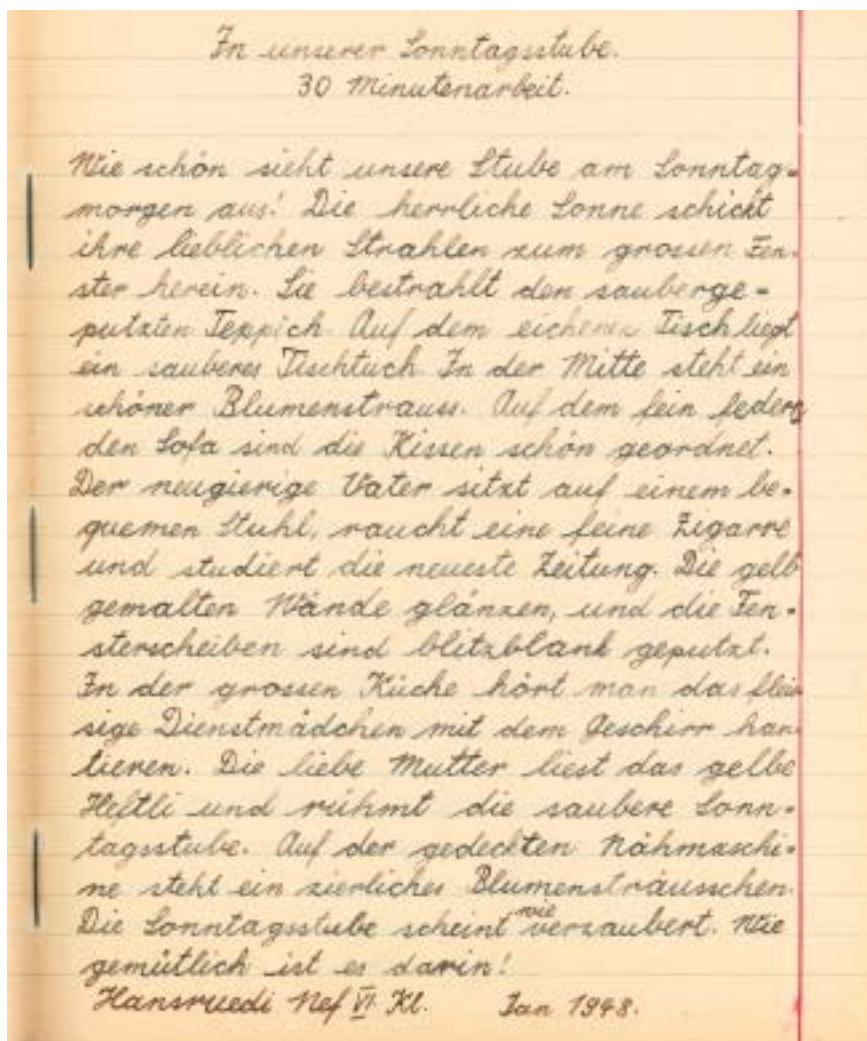 In unserer Sonntagsstube.
30 Minutenarbeit.
Wie schön sieht unsere Stube am Sonntag-
morgen aus! Die herrliche Sonne schickt
ihre lieblichen Strahlen zum grossen Fen-
ster herein. Sie bestrahlt den sauberge-
putzten Teppich. Auf dem eichenen Tisch liegt
ein sauberes Tischtuch. In der Mitte steht ein
schöner Blumenstrauss. Auf dem fein federn
den Sofa sind die Kissen schön geordnet.
Der neugierige Vater sitzt auf einem be-
quemen Stuhl, raucht eine feine Zigarre
und studiert die neueste Zeitung. Die gelb
gemalten Wände glänzen, und die Fen-
sterscheiben sind blitzblank geputzt.
In der grossen Küche hört man das fleis
sige Dienstmädchen mit dem Geschirr han
tieren. Die liebe Mutter liest das gelbe
Heftli und rühmt die saubere Sonn-
tagsstube. Auf der gedeckten Nähmaschi-
ne steht ein zierliches Blumensträusschen.
Die Sonntagsstube scheint wie verzaubert. Wie
gemütlich ist es darin!
Hansruedi Nef VI. Kl. Jan 1948.